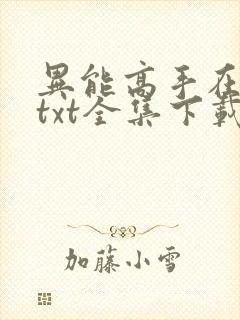 異能高手在
txt全集下載
加藤小雪